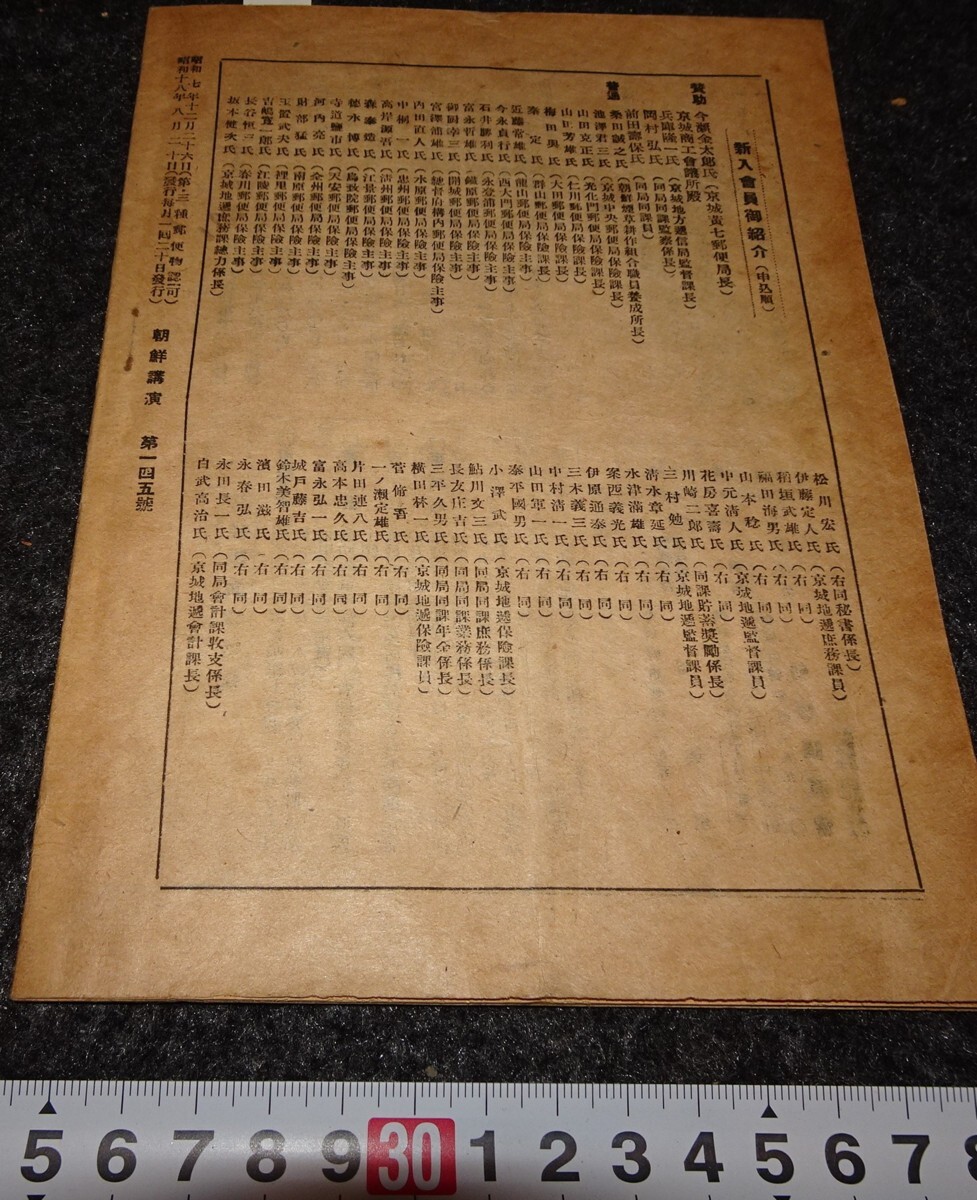 新入會員御紹介(申込順)
贊助
今瀬金太郎氏(京城黃七郵便局長)
京城商工會議所殿
兵頭隆一氏(京城地方遞信局監督課長)
間村弘氏(同局同課監察係長)
前田壽保氏(同局同課員)
普通
桑田誠之氏(朝鮮煙草耕作組合職員養成所長)
瀧澤君三氏(京城中央郵便局保險課長)
山田克正氏(光化門郵便局保險課長)
山田芳雄氏(仁川郵便局保險課長)
梅田勇氏(大田郵便局保險課長)
秦定氏(群山郵便局保險課長)
近藤常雄氏(龍山郵便局保險主事)
今永貞行氏(西大門郵便局保險主事)
石井勝利氏(永登浦郵便局保險主事)
富永哲雄氏(鐵原郵便局保險主事)
御厨幸三氏(開城郵便局保險主事)
宮澤浦雄氏(總督府構內郵便局保險主事)
內田直人氏(水原郵便局保險主事)
中桐一氏(忠州郵便局保險主事)
高岸源吾氏(淸州郵便局保險主事)
森泰燈氏(江景郵便局保險主事)
德永博氏(鳥致院郵便局保險主事)
寺道鹽市氏(天安郵便局保險主事)
河內亮氏(全州郵便局保險主事)
財部猛氏(南原郵便局保險主事)
玉置武夫氏(裡里郵便局保險主事)
吉嶋寬一郎氏(江陵郵便局保險主事)
長谷恒三氏(春川郵便局保險主事)
坂本健次氏(京城地遞庶務課總力係長)
松川宏氏(右同秘書係長)
伊藤定人氏(京城地遞庶務課員)
稻垣武雄氏(右同)
福田海男氏(右同)
山本稔氏(右同)
中元清人氏(京城地遞監督課員)
花房喜壽氏(右同)
川崎二郎氏(同課貯蓄奬勵係長)
三村勉氏(京城地遞監督課員)
淸水章延氏(右同)
水津滿雄氏(右同)
案西義光氏(右同)
伊原通泰氏(右同)
三木義三氏(右同)
中村淸一氏(右同)
山田軍一氏(右同)
泰平國男氏(右同)
小澤武氏(京城地遞保險課長)
鮎川文三氏(同局同課庶務係長)
長友庄吉氏(同局同課業務係長)
三平久男氏(同局同課年金係長)
橫田林一氏(京城地遞保險課員)
菅脩吾氏(右同)
一ノ瀬定雄氏(右同)
片田連八氏(右同)
高本忠久氏(右同)
富永弘一氏(右同)
城戶藤吉氏(右同)
鈴木美智雄氏(右同)
濱田滋氏(右同)
永春弘氏(右同)
永田長一氏(同局會計課收支係長)
白武高治氏(京城地遞會計課長)
昭和七年十二月二十六日(第三種郵便物認可)
昭和十八年八月二十日(發行每月一回二十日發行)
朝鮮講演 第一四五號
5 6 7 8 9 30 1 2 3 4 5 6 7 8